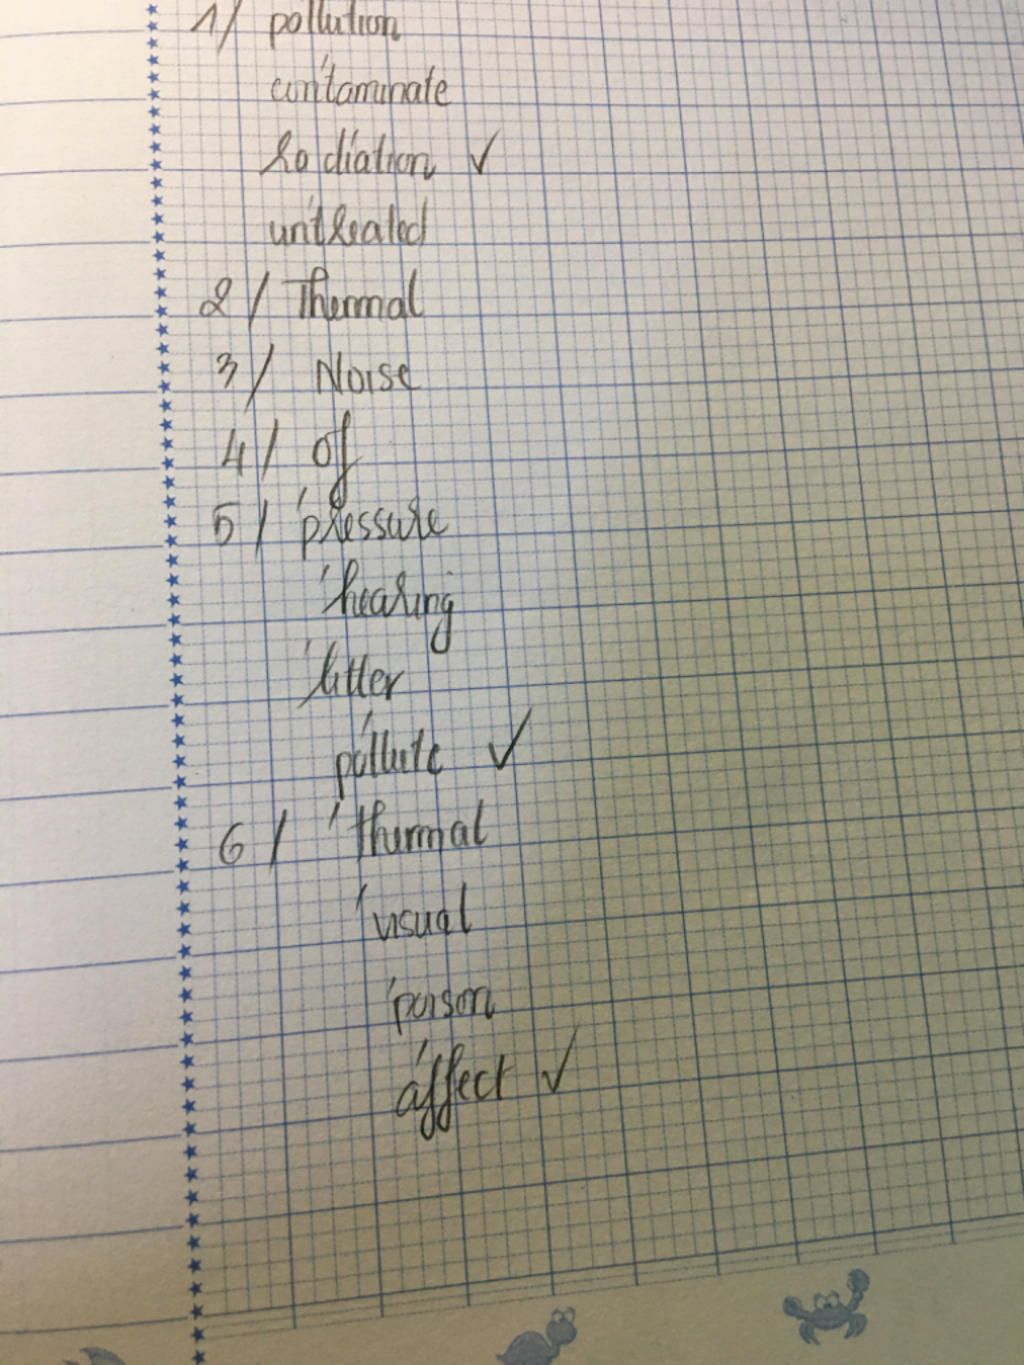 1/ pollution
con'taminate
radiation ✓
un'treated
2/ Thermal
3/ Noise
4/ of
5/ 'pressure
'hearing
'litter
po'llute ✓
6/ 'thermal
'visual
'poison
a'ffect ✓